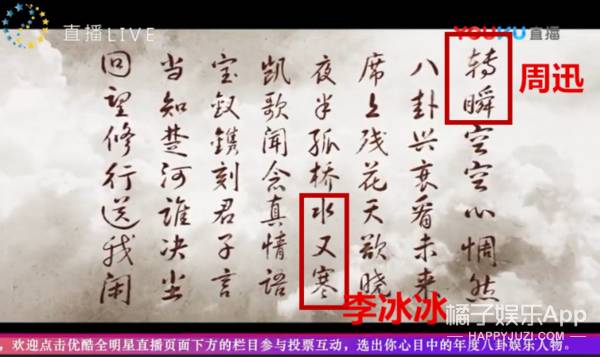 直播LIVE
YOUKU直播
转瞬空空心惆然
八卦兴衰看未来
席上残花天欲晓
夜半孤桥水又寒
凯歌闻念真情语
宝钗镌刻君子言
当知楚河谁决坐
回望修行送我闲
周迅
李冰冰
橘子娱乐App
HAPPYJUZI.COM
，欢迎点击优酷全明星直播页面下方的栏目参与投票互动，选出你心目中的年度八卦娱乐人物。